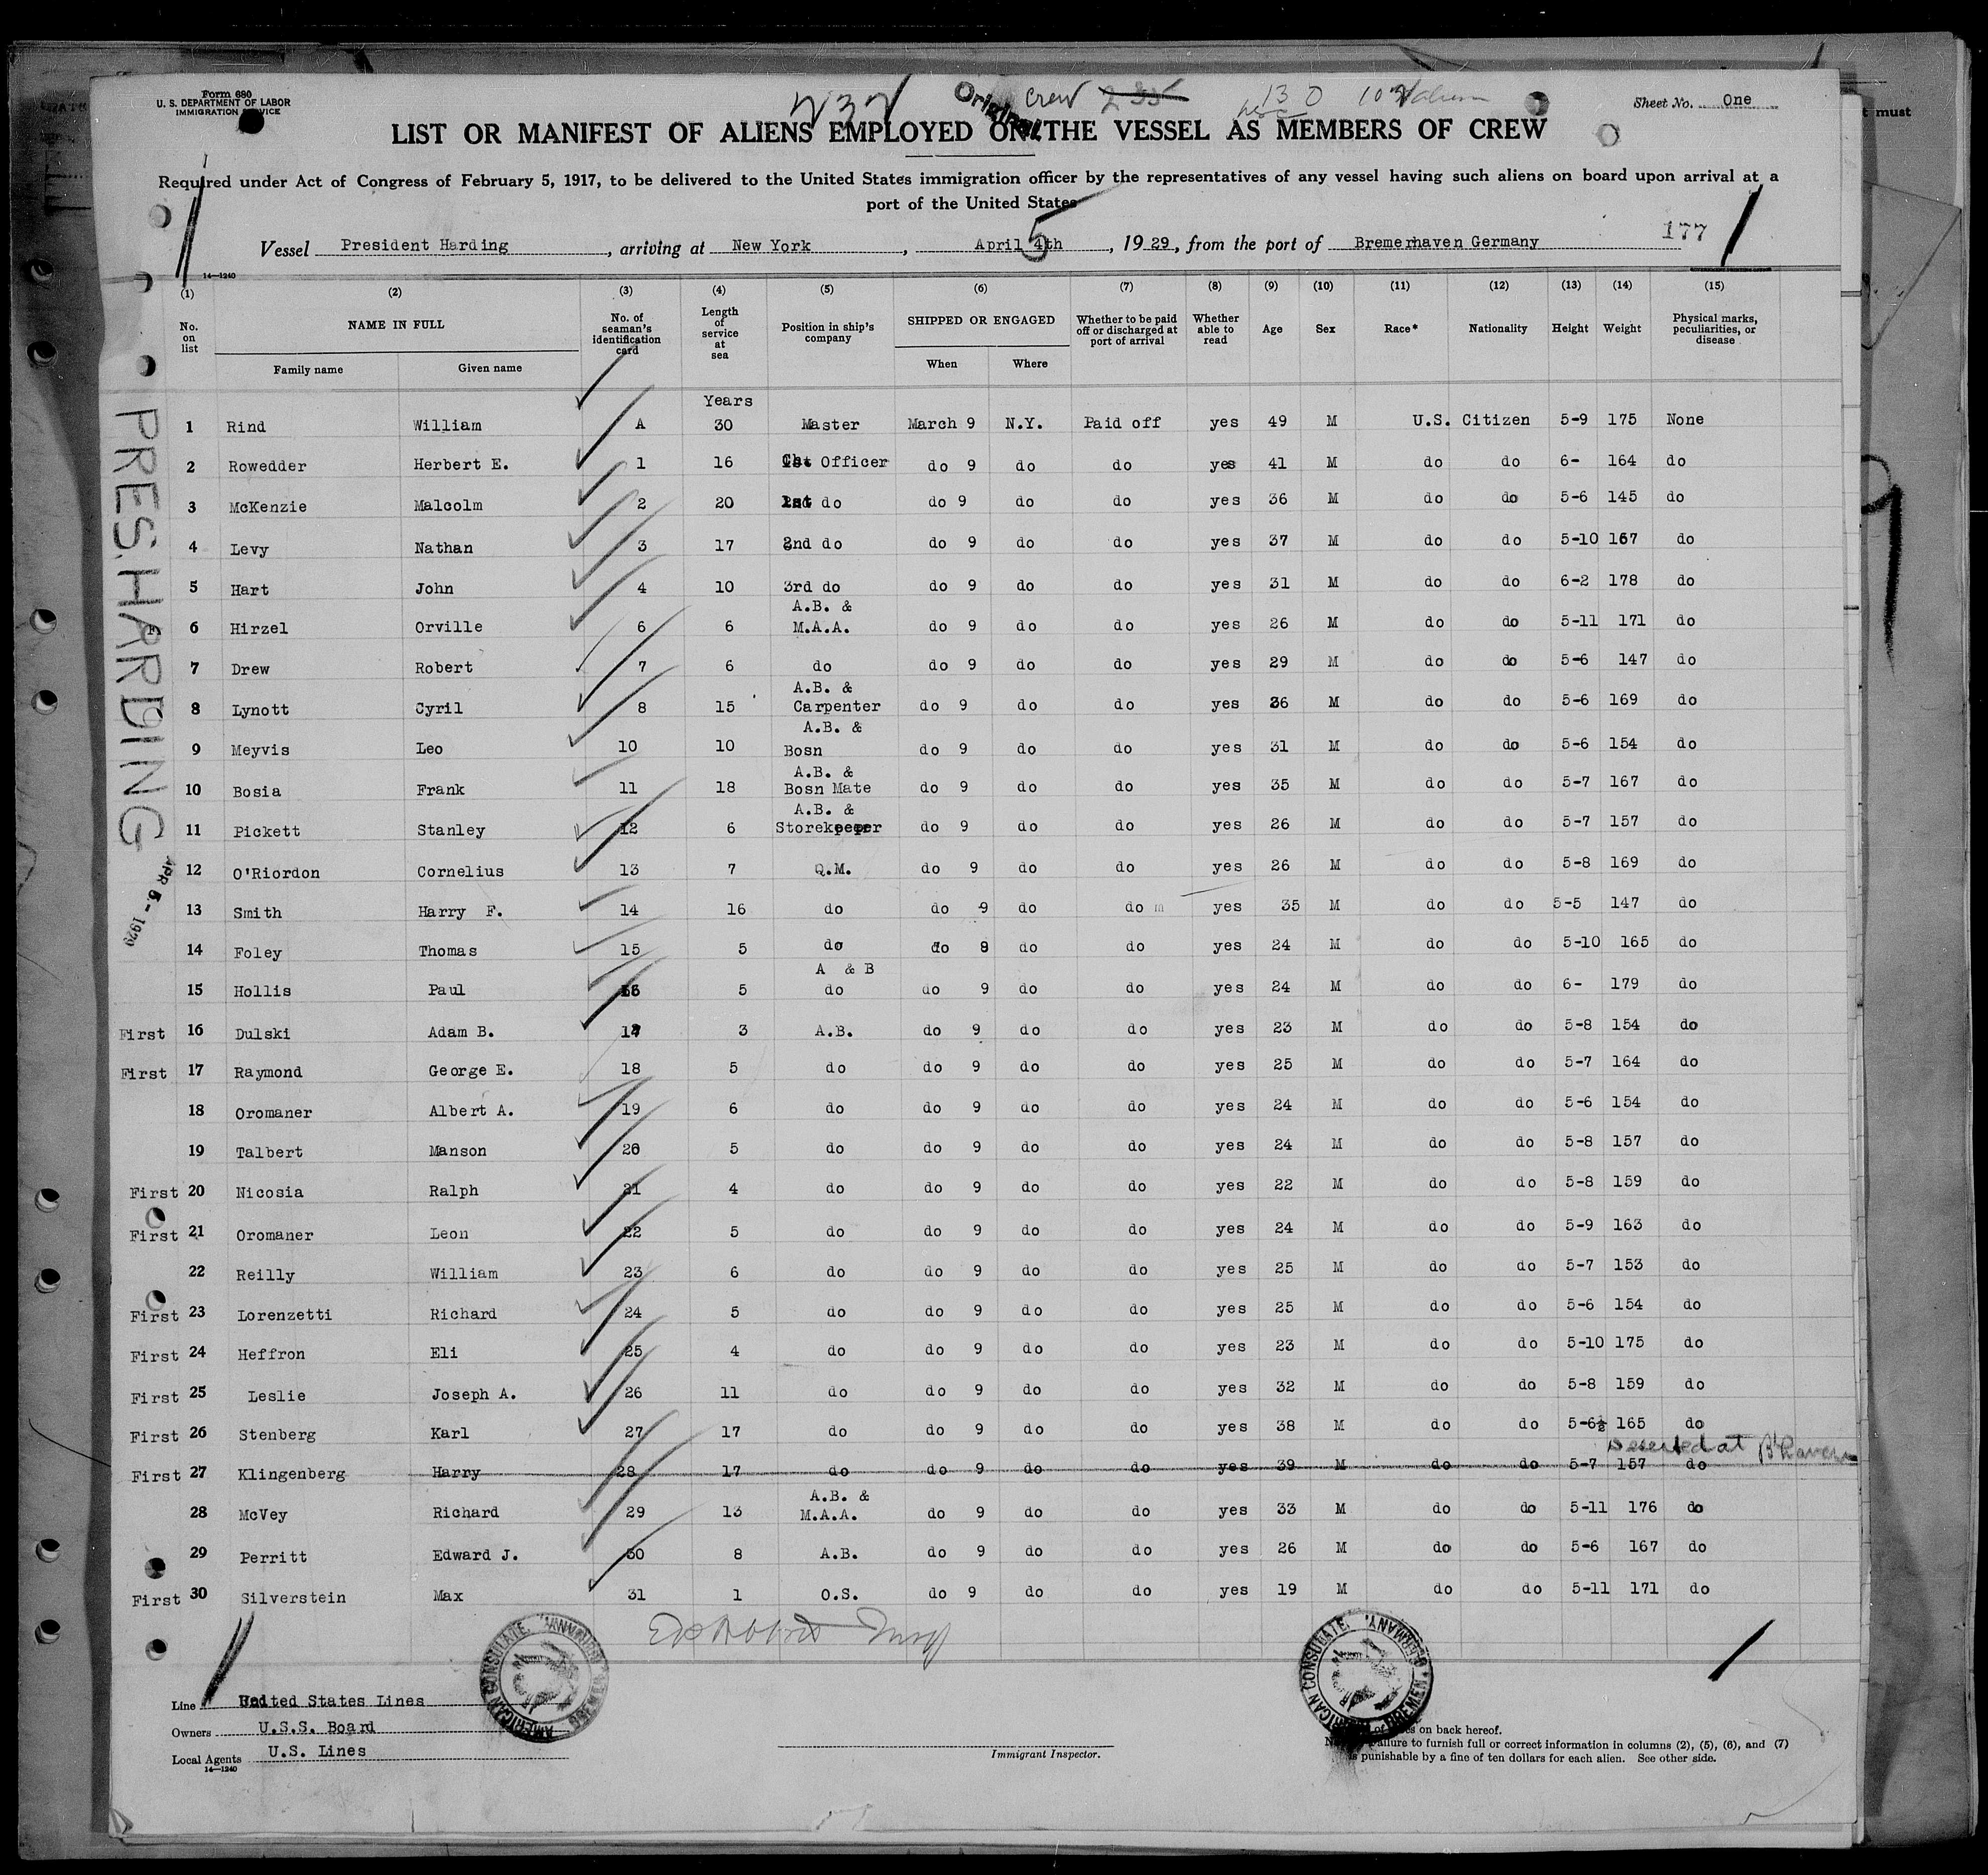 Form 680
U. S. DEPARTMENT OF LABOR
IMMIGRATION SERVICE
Original
Crew
Sheet No. One
LIST OR MANIFEST OF ALIENS EMPLOYED ON THE VESSEL AS MEMBERS OF CREW
Required under Act of Congress of February 5, 1917, to be delivered to the United States immigration officer by the representatives of any vessel having such aliens on board upon arrival at a
port of the United States
Vessel President Harding, arriving at New York, April 4th 5, 1929, from the port of Bremerhaven Germany 177
14—1240
(1) (2) (3) (4) (5) (6) (7) (8) (9) (10) (11) (12) (13) (14) (15)
No. on list NAME IN FULL Family name Given name No. of seaman's identification card Length of service at sea Position in ship's company SHIPPED OR ENGAGED When Where Whether to be paid off or discharged at port of arrival Whether able to read Age Sex Race* Nationality Height Weight Physical marks, peculiarities, or disease
Years
1 Rind William A 30 Master March 9 N.Y. Paid off yes 49 M U.S. Citizen 5-9 175 None
2 Rowedder Herbert E. 1 16 Officer do 9 do do yes 41 M do do 6- 164 do
3 McKenzie Malcolm 2 20 1st do do 9 do do yes 36 M do do 5-6 145 do
4 Levy Nathan 3 17 2nd do do 9 do do yes 37 M do do 5-10 167 do
5 Hart John 4 10 3rd do do 9 do do yes 31 M do do 6-2 178 do
6 Hirzel Orville 6 6 A.B. & M.A.A. do 9 do do yes 26 M do do 5-11 171 do
7 Drew Robert 7 6 do do 9 do do yes 29 M do do 5-6 147 do
8 Lynott Cyril 8 15 A.B. & Carpenter do 9 do do yes 36 M do do 5-6 169 do
9 Meyvis Leo 10 10 A.B. & Bosn do 9 do do yes 31 M do do 5-6 154 do
10 Bosia Frank 11 18 A.B. & Bosn Mate do 9 do do yes 35 M do do 5-7 167 do
11 Pickett Stanley 12 6 A.B. & Storekeeper do 9 do do yes 26 M do do 5-7 157 do
12 O'Riordon Cornelius 13 7 Q.M. do 9 do do yes 26 M do do 5-8 169 do
13 Smith Harry F. 14 16 do do 9 do do yes 35 M do do 5-5 147 do
14 Foley Thomas 15 5 do do 9 do do yes 24 M do do 5-10 165 do
15 Hollis Paul 16 5 A & B do do 9 do do yes 24 M do do 6- 179 do
First 16 Dulski Adam B. 17 3 A.B. do 9 do do yes 23 M do do 5-8 154 do
First 17 Raymond George E. 18 5 do do 9 do do yes 25 M do do 5-7 164 do
18 Oromaner Albert A. 19 6 do do 9 do do yes 24 M do do 5-6 154 do
19 Talbert Manson 20 5 do do 9 do do yes 24 M do do 5-8 157 do
First 20 Nicosia Ralph 21 4 do do 9 do do yes 22 M do do 5-8 159 do
First 21 Oromaner Leon 22 5 do do 9 do do yes 24 M do do 5-9 163 do
22 Reilly William 23 6 do do 9 do do yes 25 M do do 5-7 153 do
First 23 Lorenzetti Richard 24 5 do do 9 do do yes 25 M do do 5-6 154 do
First 24 Heffron Eli 25 4 do do 9 do do yes 23 M do do 5-10 175 do
First 25 Leslie Joseph A. 26 11 do do 9 do do yes 32 M do do 5-8 159 do
First 26 Stenberg Karl 27 17 do do 9 do do yes 38 M do do 5-6½ 165 do
Deserted at B'haven
First 27 Klingenberg Harry 28 17 do do 9 do do yes 39 M do do 5-7 157 do
28 McVey Richard 29 13 A.B. & M.A.A. do 9 do do yes 33 M do do 5-11 176 do
29 Perritt Edward J. 30 8 A.B. do 9 do do yes 26 M do do 5-6 167 do
First 30 Silverstein Max 31 1 O.S. do 9 do do yes 19 M do do 5-11 171 do
PRES. HARDING
APR 5 - 1929
AMERICAN CONSULATE, BREMEN, GERMANY.
AMERICAN CONSULATE, BREMEN, GERMANY.
Line United States Lines
Owners U.S.S. Board
Local Agents U.S. Lines
14—1240
Immigrant Inspector.
of races on back hereof.
failure to furnish full or correct information in columns (2), (5), (6), and (7)
is punishable by a fine of ten dollars for each alien. See other side.
t must